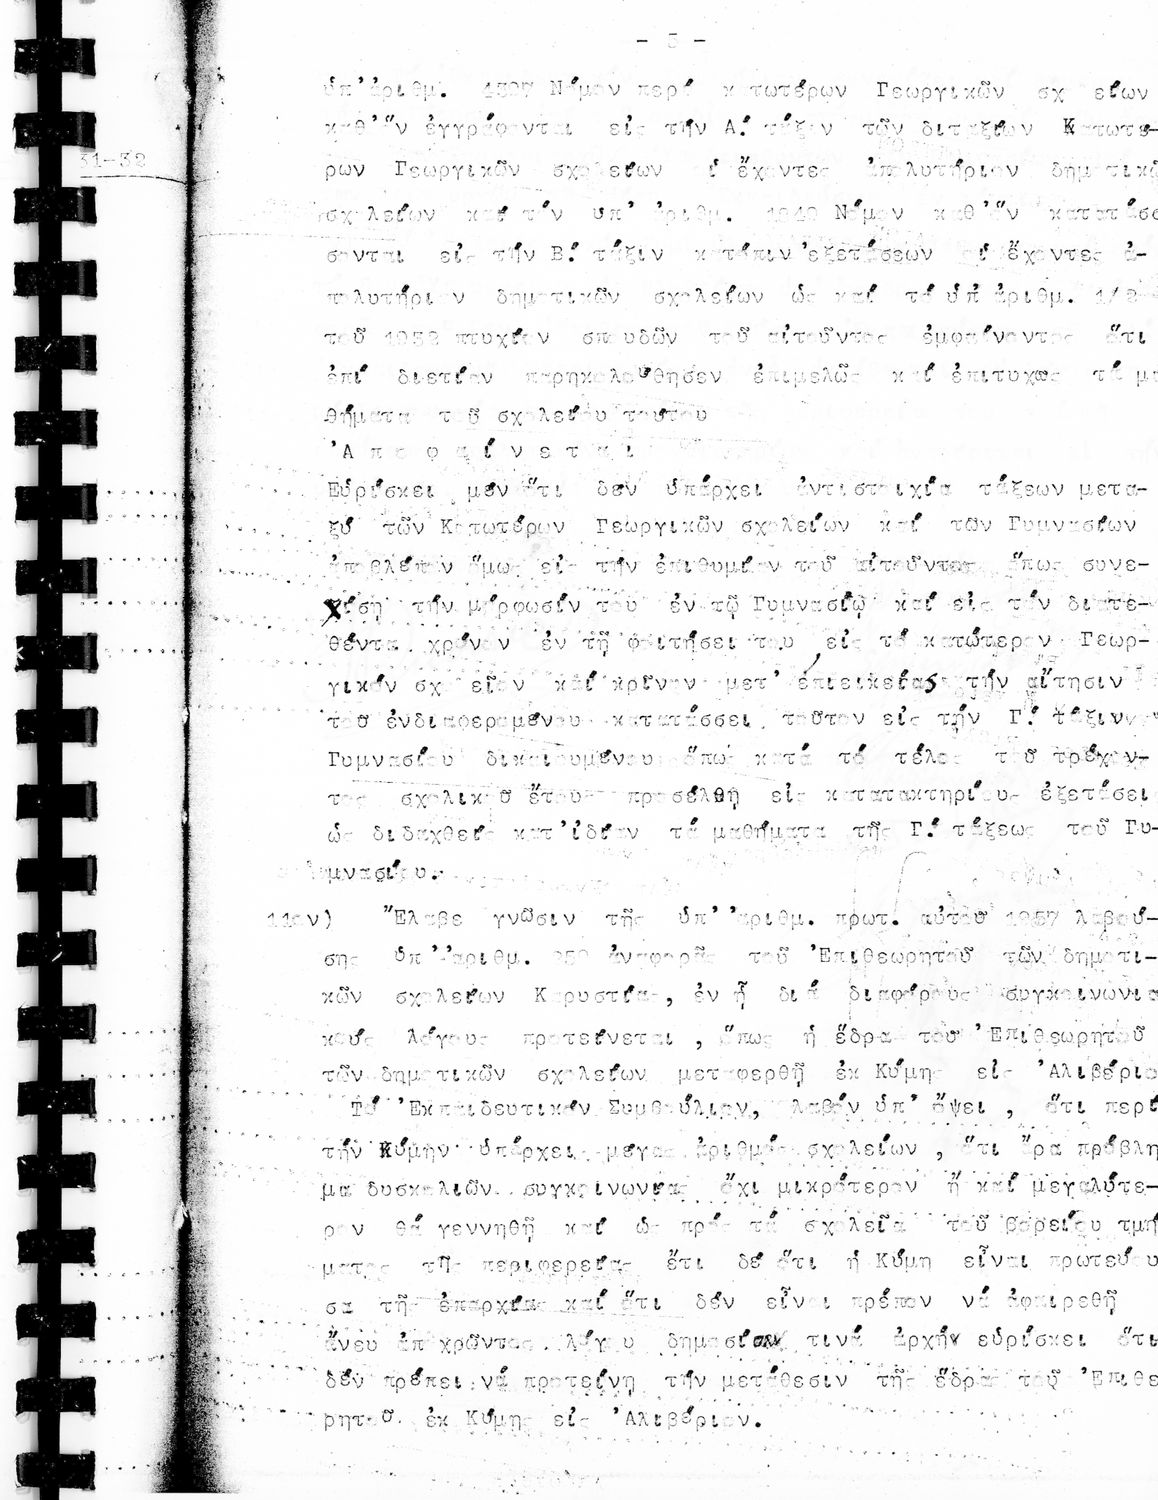 - 5 -
ὑπ'ἀριθμ. 4397 Νόμον περί κατωτέρων Γεωργικῶν σχολείων
καθ'ὅν ἐγγράφονται εἰς τήν Α.΄ τάξιν τῶν διταξίων Κατωτέ-
31-32
ρων Γεωργικῶν σχολείων οἱ ἔχοντες ἀπολυτήριον δημοτικῶ
σχολείων καί τόν ὑπ' ἀριθμ. 1849 Νόμον καθ'ὅν κατατάσσ
σονται εἰς τήν Β.΄ τάξιν κατόπιν ἐξετάσεων οἱ ἔχοντες ἀ-
πολυτήριον δημοτικῶν σχολείων ὡς καί τό ὑπ' ἀριθμ. 1/8
τοῦ 1952 πτυχίον σπουδῶν τοῦ αἰτοῦντος ἐμφαίνοντος ὅτι
ἐπί διετίαν παρηκολούθησεν ἐπιμελῶς καί ἐπιτυχῶς τά μα
θήματα τοῦ σχολείου τούτου
'Α π ο φ α ί ν ε τ α ι
Εὑρίσκει μέν ὅτι δέν ὑπάρχει ἀντιστοιχία τάξεων μετα-
ξύ τῶν Κατωτέρων Γεωργικῶν σχολείων καί τῶν Γυμνασίων
ἀποβλέπον ὅμως εἰς τήν ἐπιθυμίαν τοῦ αἰτοῦντος ὅπως συνε-
χίση τήν μόρφωσίν του ἐν τῷ Γυμνασίῳ καί εἰς τόν διατε-
θέντα χρόνον ἐν τῇ φοιτήσει του εἰς τό κατώτερον Γεωρ-
γικόν σχολεῖον καί κρίνον μετ' ἐπιεικείας τήν αἴτησιν
τοῦ ἐνδιαφερομένου κατατάσσει τοῦτον εἰς τήν Γ.΄ τάξιν
Γυμνασίου δικαιουμένου ὅπως κατά τό τέλος τοῦ τρέχον-
τος σχολικοῦ ἔτους προσέλθῃ εἰς κατατακτηρίους ἐξετάσει
ὡς διδαχθείς κατ'ἰδίαν τά μαθήματα τῆς Γ.΄ τάξεως τοῦ Γυ-
μνασίου.
11ον) Ἔλαβε γνῶσιν τῆς ὑπ' ἀριθμ. πρωτ. αὐτοῦ 1957 λαβού-
σης ὑπ' ἀριθμ. 850 ἀναφορᾶς τοῦ Ἐπιθεωρητοῦ τῶν δημοτι-
κῶν σχολείων Καρυστίας, ἐν ᾗ διά διαφόρους συγκοινωνια
κούς λόγους προτείνεται , ὅπως ἡ ἕδρα τοῦ Ἐπιθεωρητοῦ
τῶν δημοτικῶν σχολείων μεταφερθῇ ἐκ Κύμης εἰς Ἀλιβέριο
Τό Ἐκπαιδευτικόν Συμβούλιον, λαβόν ὑπ' ὄψει , ὅτι περί
τήν Κύμην ὑπάρχει μέγας ἀριθμός σχολείων , ὅτι ἄρα πρόβλη
μα δυσκολιῶν συγκοινωνίας ὄχι μικρότερον ἤ καί μεγαλύτε-
ρον θά γεννηθῇ καί ὡς πρός τά σχολεῖα τοῦ βορείου τμή
ματος τῆς περιφερείας ἔτι δέ ὅτι ἡ Κύμη εἶναι πρωτεύου
σα τῆς ἐπαρχίας καί ὅτι δέν εἶναι πρέπον νά ἀφαιρεθῇ
ἄνευ ἀποχρῶντος λόγου δημοσίαν τινά ἀρχήν εὑρίσκει ὅτι
δέν πρέπει νά προτείνη τήν μετάθεσιν τῆς ἕδρας τοῦ Ἐπιθε
ρητοῦ ἐκ Κύμης εἰς Ἀλιβέριον.